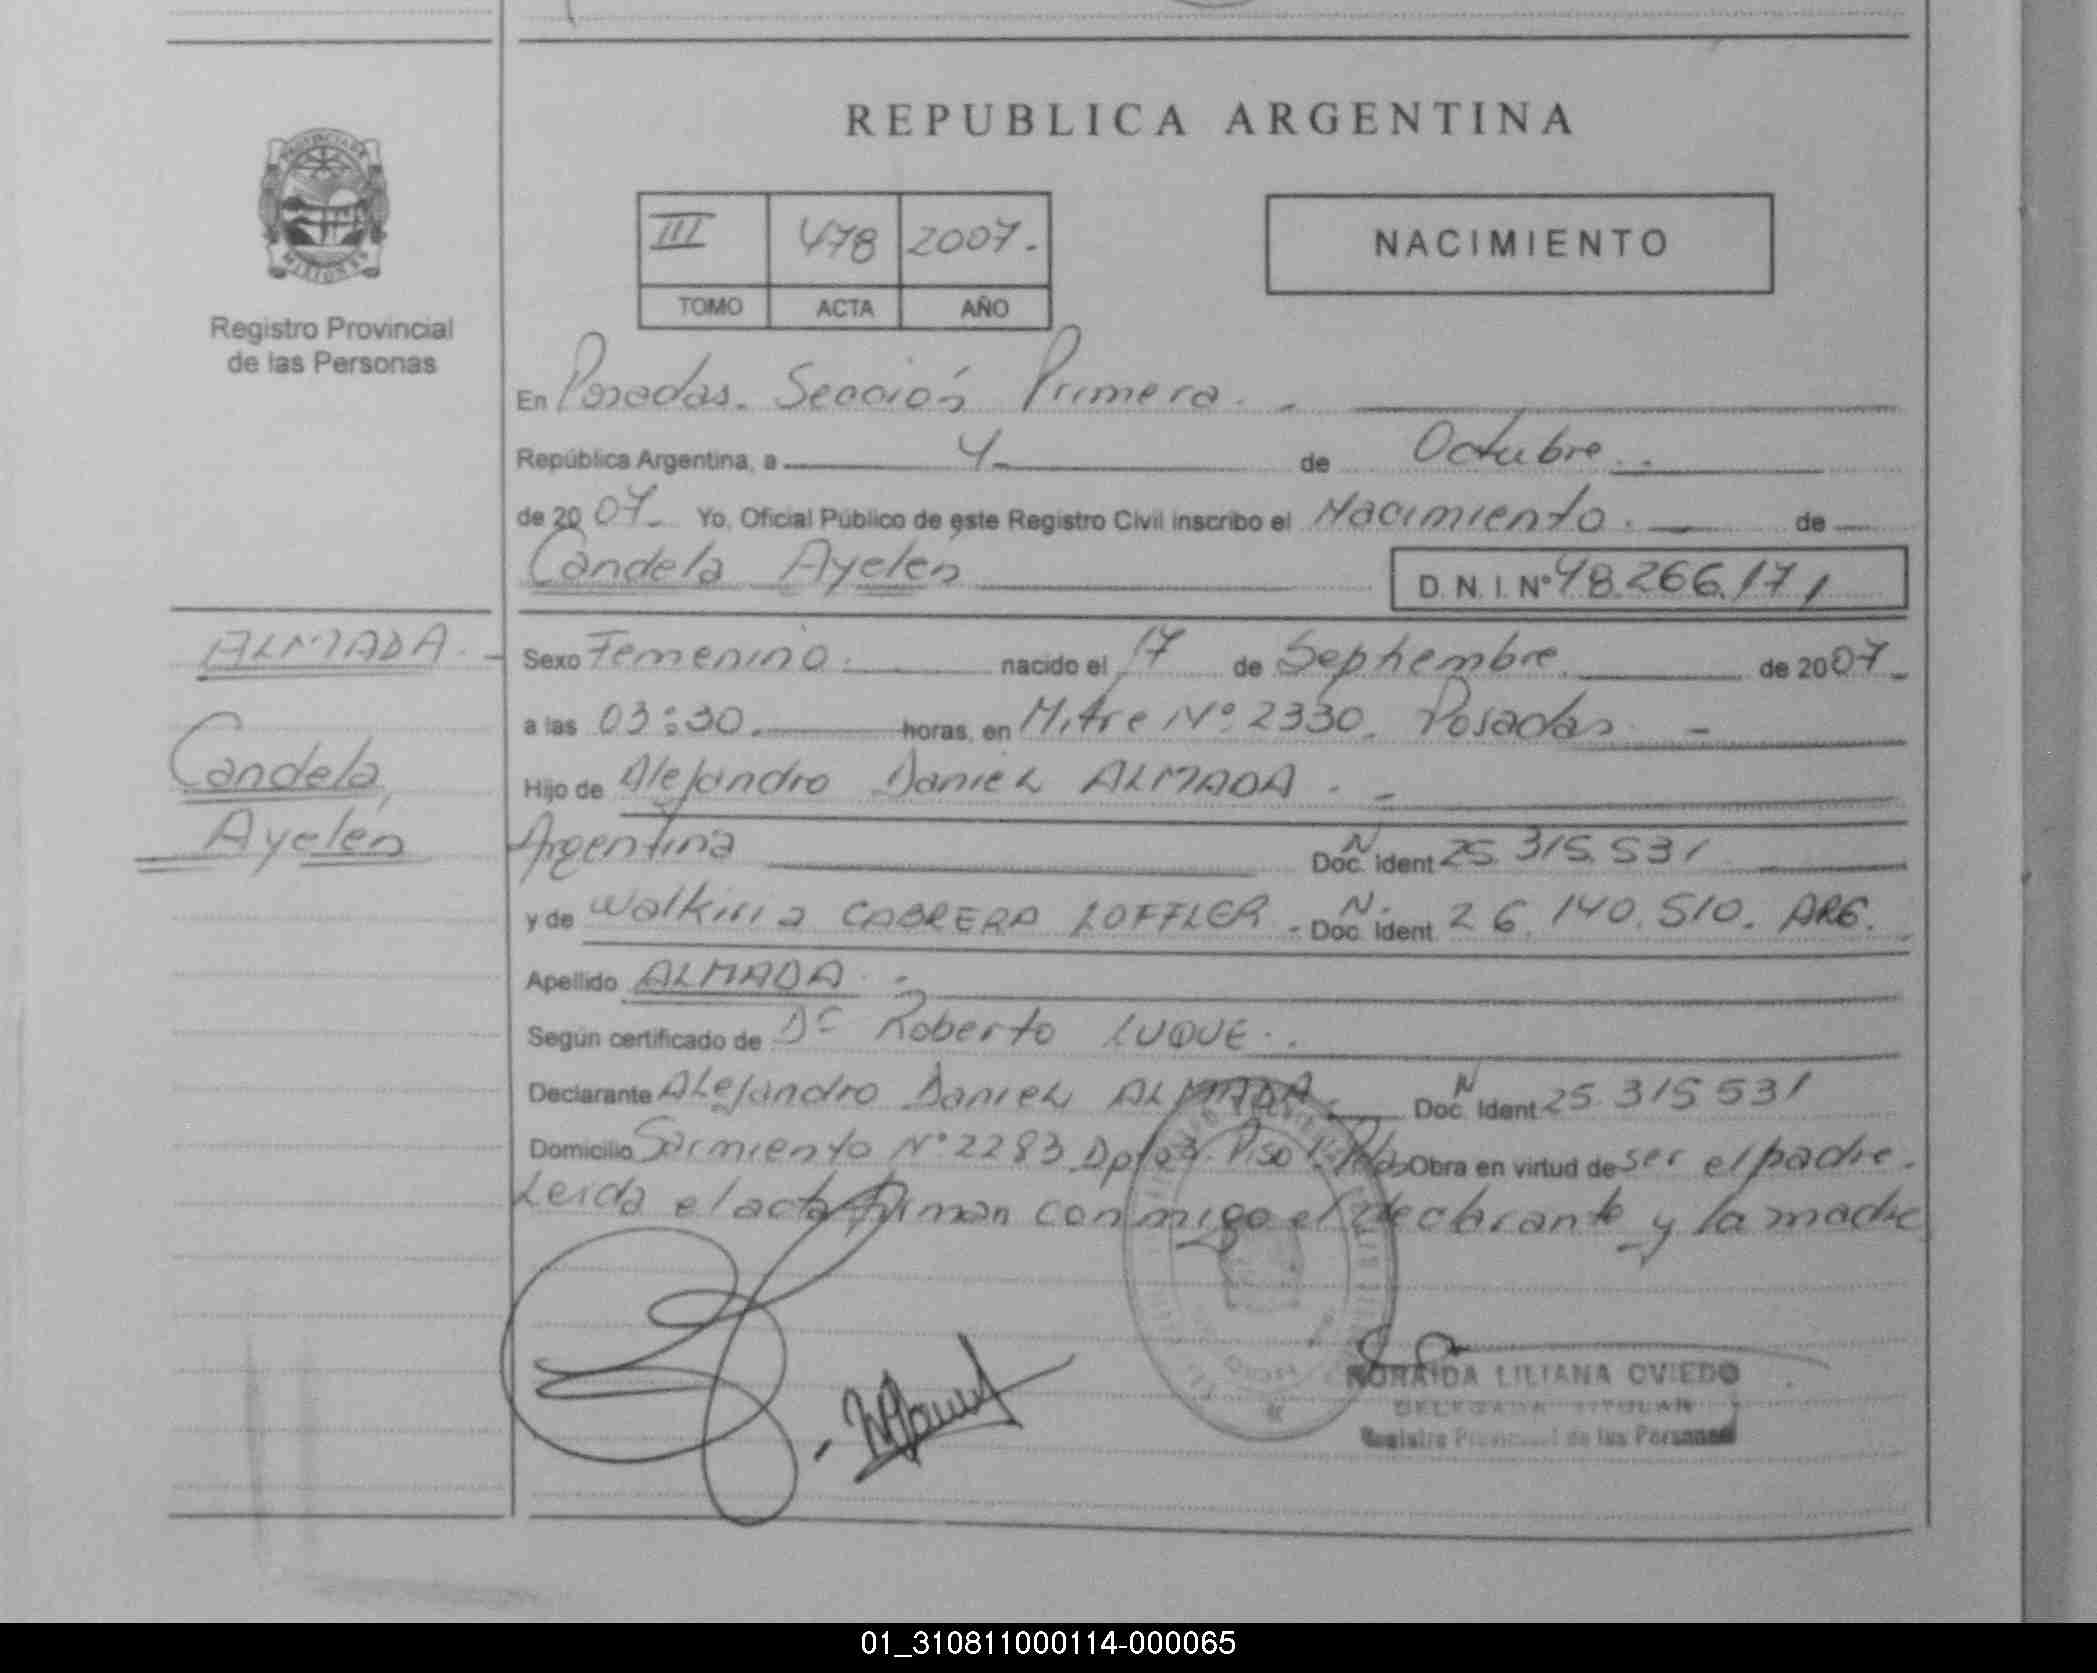 REPUBLICA ARGENTINA
PROVINCIA DE
MISIONES
Registro Provincial
de las Personas
III 478 2007.
TOMO ACTA AÑO
NACIMIENTO
En Posadas. Sección Primera.
República Argentina, a 4 de Octubre
de 2007. Yo, Oficial Público de este Registro Civil inscribo el Nacimiento. de
Candela Ayelén
D. N. I. Nº 48.266.171
ALMADA.
Candela
Ayelén
Sexo Femenino. nacido el 17 de Septiembre de 2007
a las 03:30. horas, en Mitre Nº 2330. Posadas
Hijo de Alejandro Daniel ALMADA.
Argentina N Doc. Ident 25.315.531
y de Walkiria CABRERA LOFFLER - N. Doc. Ident. 26.140.510. ARG.
Apellido ALMADA.
Según certificado de Dr Roberto LUQUE.
Declarante Alejandro Daniel ALMADA N Doc. Ident 25.315531
Domicilio Sarmiento Nº 2283 Piso Obra en virtud de ser el padre.
Leída el acta firman conmigo el declarante y la madre
NORAIDA LILIANA OVIEDO
DELEGADA TITULAR
Registro Provincial de las Personas
01_310811000114-000065